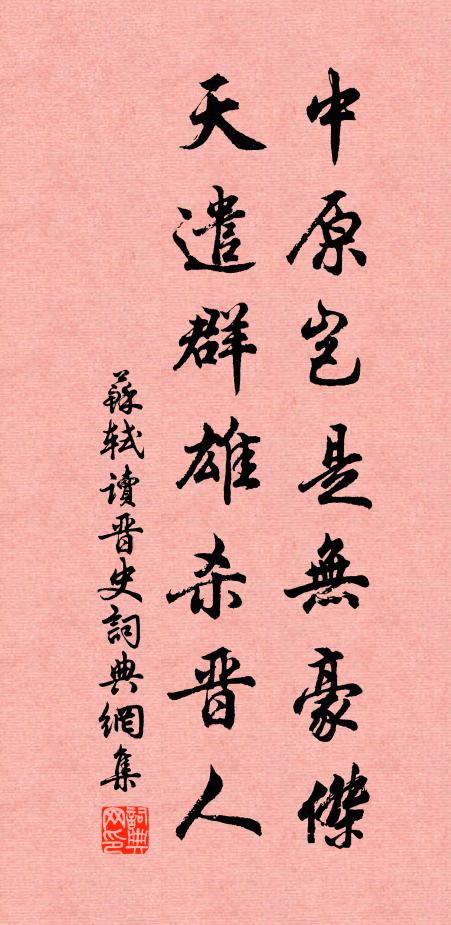 中原豈是無豪傑
天遣群雄杀晉人
蘇軾讀晋史詞典網集
詞典网印